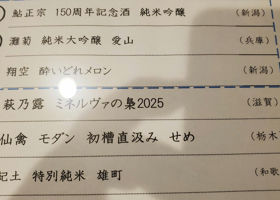 鮎正宗 150周年記念酒 純米吟醸 (新潟)
灘菊 純米大吟醸 愛山 (兵庫)
翔空 酔いどれメロン (新潟)
萩乃露 ミネルヴァの梟2025 (滋賀)
仙禽 モダン 初槽直汲み せめ (栃木
紀土 特別純米 雄町 (和歌